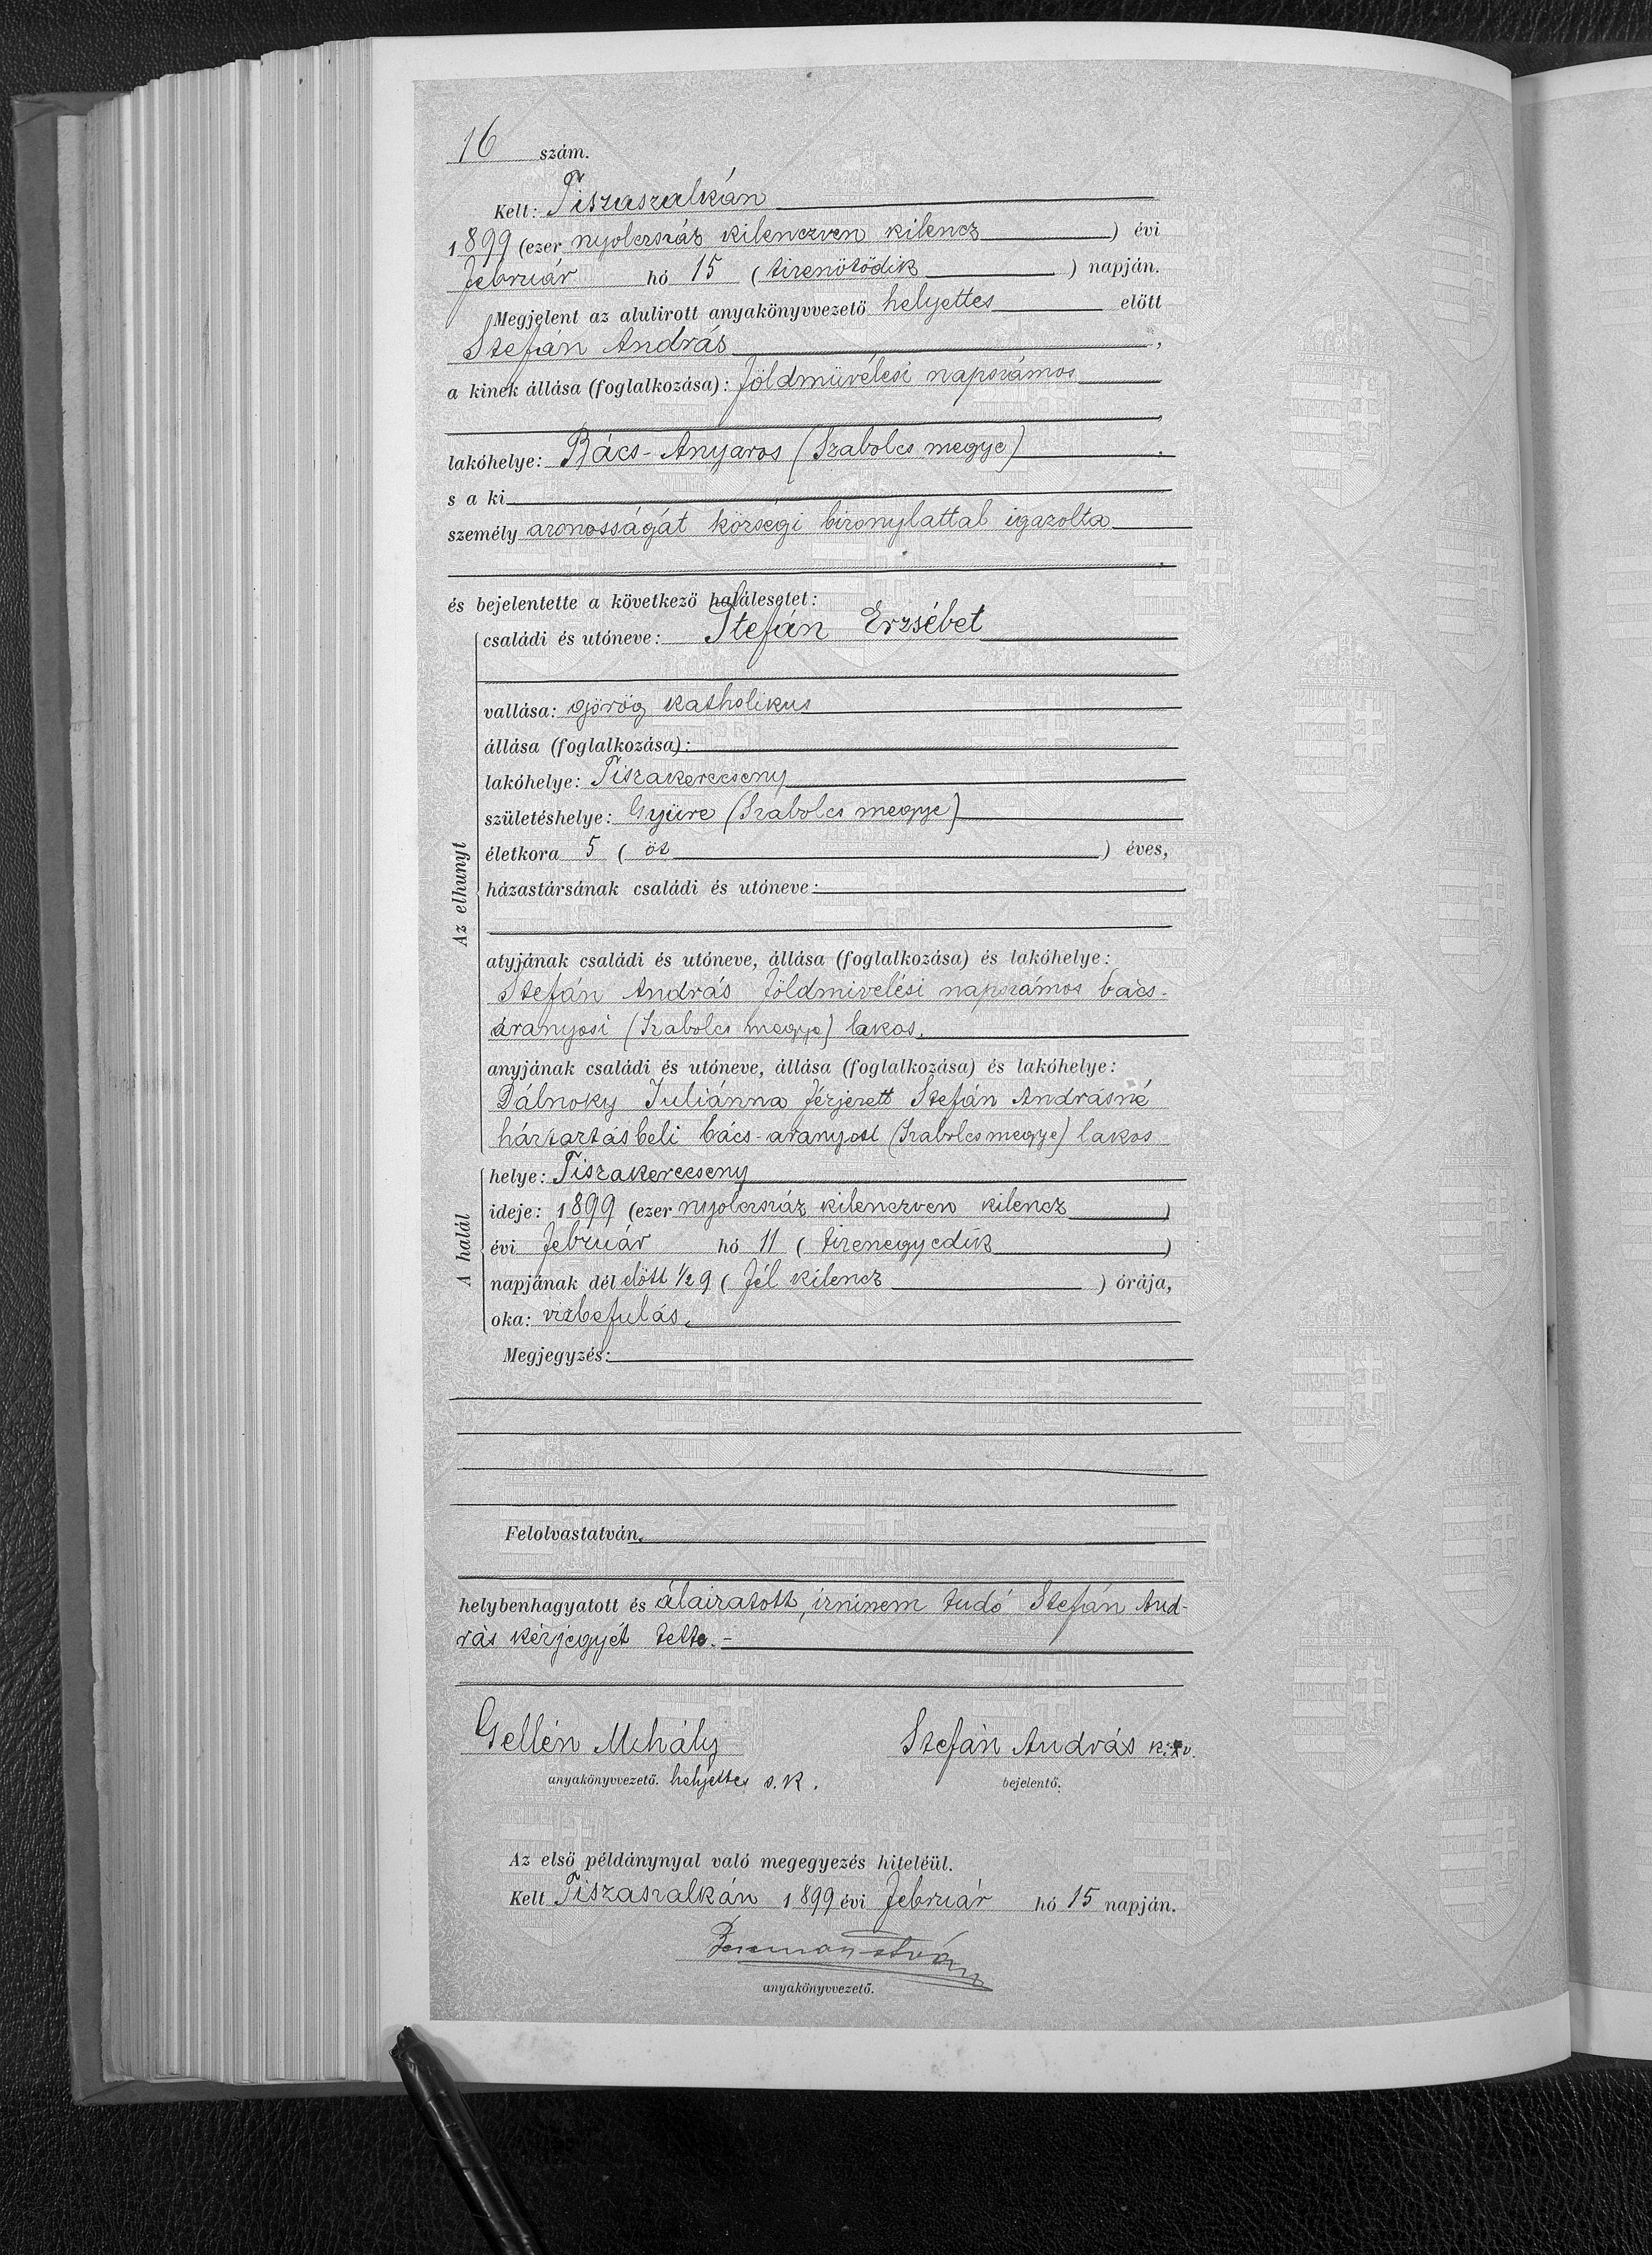 16 szám.
Kelt: Tiszaszalkán
1899 (ezer nyolczszáz kilenczven kilencz) évi
február hó 15 (tizenötödik) napján.
Megjelent az alulirott anyakönyvvezető helyettes előtt
Stefán András,
a kinek állása (foglalkozása): földmüvélési napszámos
lakóhelye: Bács-Anyaros (Szabolcs megye).
s a ki
személy azonosságát községi bizonylattal igazolta
és bejelentette a következő halálesetet:
Az elhunyt
családi és utóneve: Stefán Erzsébet
vallása: görög katholikus
állása (foglalkozása):
lakóhelye: Tiszakerecseny
születéshelye: Gyüre (Szabolcs megye)
életkora 5 (öt) éves,
házastársának családi és utóneve:
atyjának családi és utóneve, állása (foglalkozása) és lakóhelye:
Stefán András földmivelési napszámos bács-
aranyosi (Szabolcs megye) lakos.
anyjának családi és utóneve, állása (foglalkozása) és lakóhelye:
Dálnoky Juliánna férjezett Stefán Andrásné
háztartásbeli bács-aranyosi (Szabolcs megye) lakos
A halál
helye: Tiszakerecseny
ideje: 1899 (ezer nyolczszáz kilenczven kilencz)
évi február hó 11 (tizenegyedik)
napjának dél előtt ½9 (fél kilencz) órája,
oka: vizbefulás.
Megjegyzés:
Felolvastatván,
helybenhagyatott és áláiratott, irninem tudó Stefán And-
rás kézjegyét tette.-
Gellén Mihály Stefán András
anyakönyvvezető. helyettes s.k. bejelentő.
Az első példánynyal való megegyezés hiteléül.
Kelt Tiszaszalkán 1899 évi február hó 15 napján.
anyakönyvvezető.